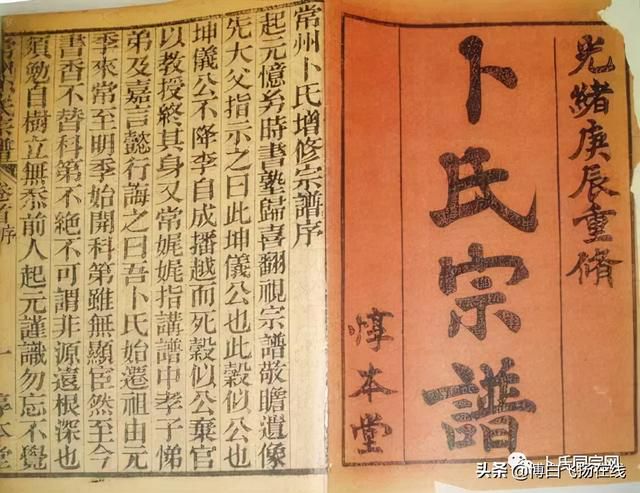 光緒庚辰重脩
卜氏宗譜
惇本堂
常州卜氏增修宗譜序
起元憶㓜時書塾歸喜翻視宗譜敬瞻遺像
先大父指示之曰此坤儀公也此穀似公也
坤儀公不降李自成播越而死穀似公棄官
以教授終其身又常娓娓指講譜中孝子悌
弟及嘉言懿行誨之曰吾卜氏始遷祖由元
季來常至明季始開科第雖無顯宦然至今
書香不替科第不絶不可謂非源遠根深也
須勉自樹立無忝前人起元謹識勿忘不覺
宗譜
卷首序
一
惇本堂
卜氏同宗网
头条 @博白飞扬在线